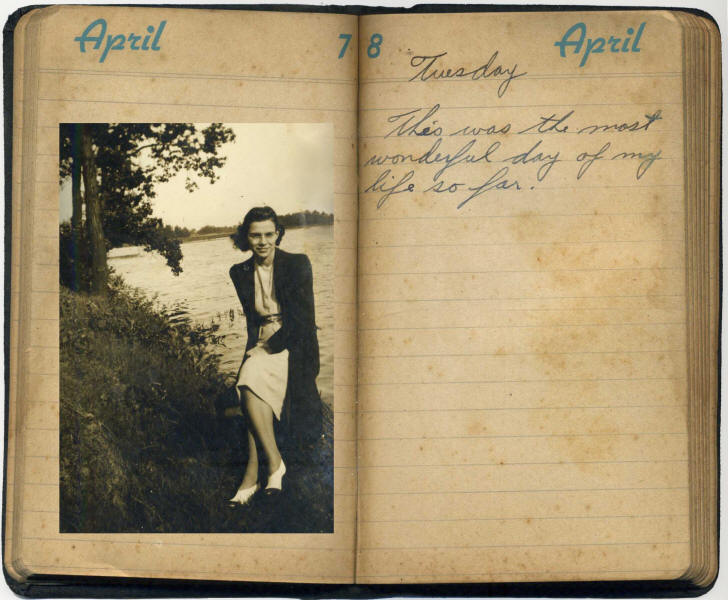 April 7
8 April
Tuesday
This was the most
wonderful day of my
life so far.